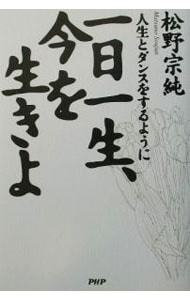 松野宗純
Matsuno Sojun
人生とダンスをするように
一日一生、
今を
生きよ
PHP